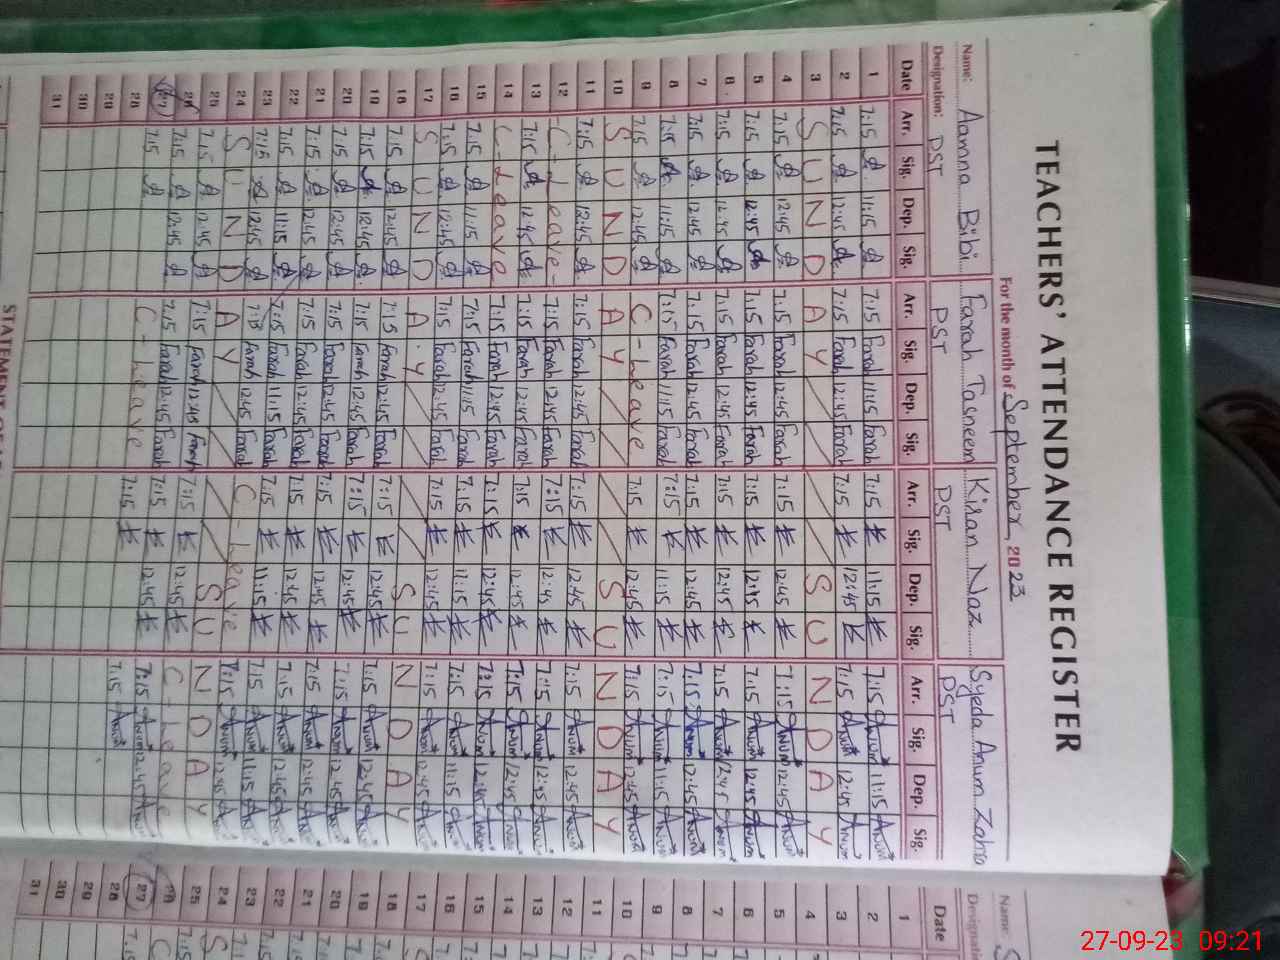 TEACHERS' ATTENDANCE REGISTER
For the month of September 2023
Name: Aamna Bibi Farah Tasneem Kiran Naz Syeda Anum Zahra
Designation: PST PST PST PST
Date Arr. Sig. Dep. Sig. Arr. Sig. Dep. Sig. Arr. Sig. Dep. Sig. Arr. Sig. Dep. Sig.
1 7:15 11:15 7:15 Farah 11:15 Farah 7.15 11:15 7:15 Anum 11:15 Anum
2 7:15 12:45 7:15 Farah 12:45 Farah 7.15 12:45 7:15 Anum 12:45 Anum
3 S U N D A Y S U N D A Y
4 7.15 12:45 7.15 Farah 12:45 Farah 7.15 12:45 7:15 Anum 12:45 Anum
5 7:15 12:45 7:15 Farah 12:45 Farah 7:15 12:45 7:15 Anum 12:45 Anum
6 7:15 12:45 7:15 Farah 12:45 Farah 7:15 12:45 7:15 Anum 12:45 Anum
7 7:15 12:45 7.15 Farah 12:45 Farah 7.15 12:45 7.15 Anum 12:45 Anum
8 7:15 11:15 7:15 Farah 11:15 Farah 7:15 11:15 7:15 Anum 11:15 Anum
9 7:15 12:45 C - Leave 7:15 12:45 7:15 Anum 12:45 Anum
10 S U N D A Y S U N D A Y
11 7:15 12:45 7:15 Farah 12:45 Farah 7:15 12:45 7:15 Anum 12:45 Anum
12 C - Leave - 7:15 Farah 12:45 Farah 7:15 12:45 7:15 Anum 12:45 Anum
13 7:15 12:45 7:15 Farah 12:45 Farah 7:15 12:45 7:15 Anum 12:45 Anum
14 C - Leave 7:15 Farah 12:45 Farah 7:15 12:45 7:15 Anum 12:45 Anum
15 7:15 11:15 7:15 Farah 11:15 Farah 7.15 11:15 7:15 Anum 11:15 Anum
16 7:15 12:45 7:15 Farah 12:45 Farah 7:15 12:45 7:15 Anum 12:45 Anum
17 S U N D A Y S U N D A Y
18 7.15 12:45 7:15 Farah 12:45 Farah 7:15 12:45 7:15 Anum 12:45 Anum
19 7.15 12:45 7:15 Farah 12:45 Farah 7:15 12:45 7:15 Anum 12:45 Anum
20 7:15 12:45 7:15 Farah 12:45 Farah 7:15 12:45 7:15 Anum 12:45 Anum
21 7:15 12:45 7:15 Farah 12:45 Farah 7:15 12:45 7:15 Anum 12:45 Anum
22 7:15 11:15 7:15 Farah 11:15 Farah 7.15 11:15 7:15 Anum 11:15 Anum
23 7:15 12:45 7:15 Farah 12:45 Farah C - Leave 7:15 Anum 12:45 Anum
24 S U N D A Y S U N D A Y
25 7.15 12:45 7:15 Farah 12:45 Farah 7:15 12:45 C - Leave
26 7:15 12:45 7:15 Farah 12:45 Farah 7:15 12:45 7:15 Anum 12:45 Anum
27 7:15 C - Leave 7:15 7:15 Anum
28
29
30
31
STATEMENT OF
Name: S
Designati
Date
1
2 7
3 7
4
5 7
6 7
7 7
8 7
9 7
10 7
11
12 7
13 7
14 7
15 7
16 7
17
18
19 7
20 7
21
22
23
24 S
25 7:15
26 C
27 7.15
28
29
30
31
27-09-23 09:21